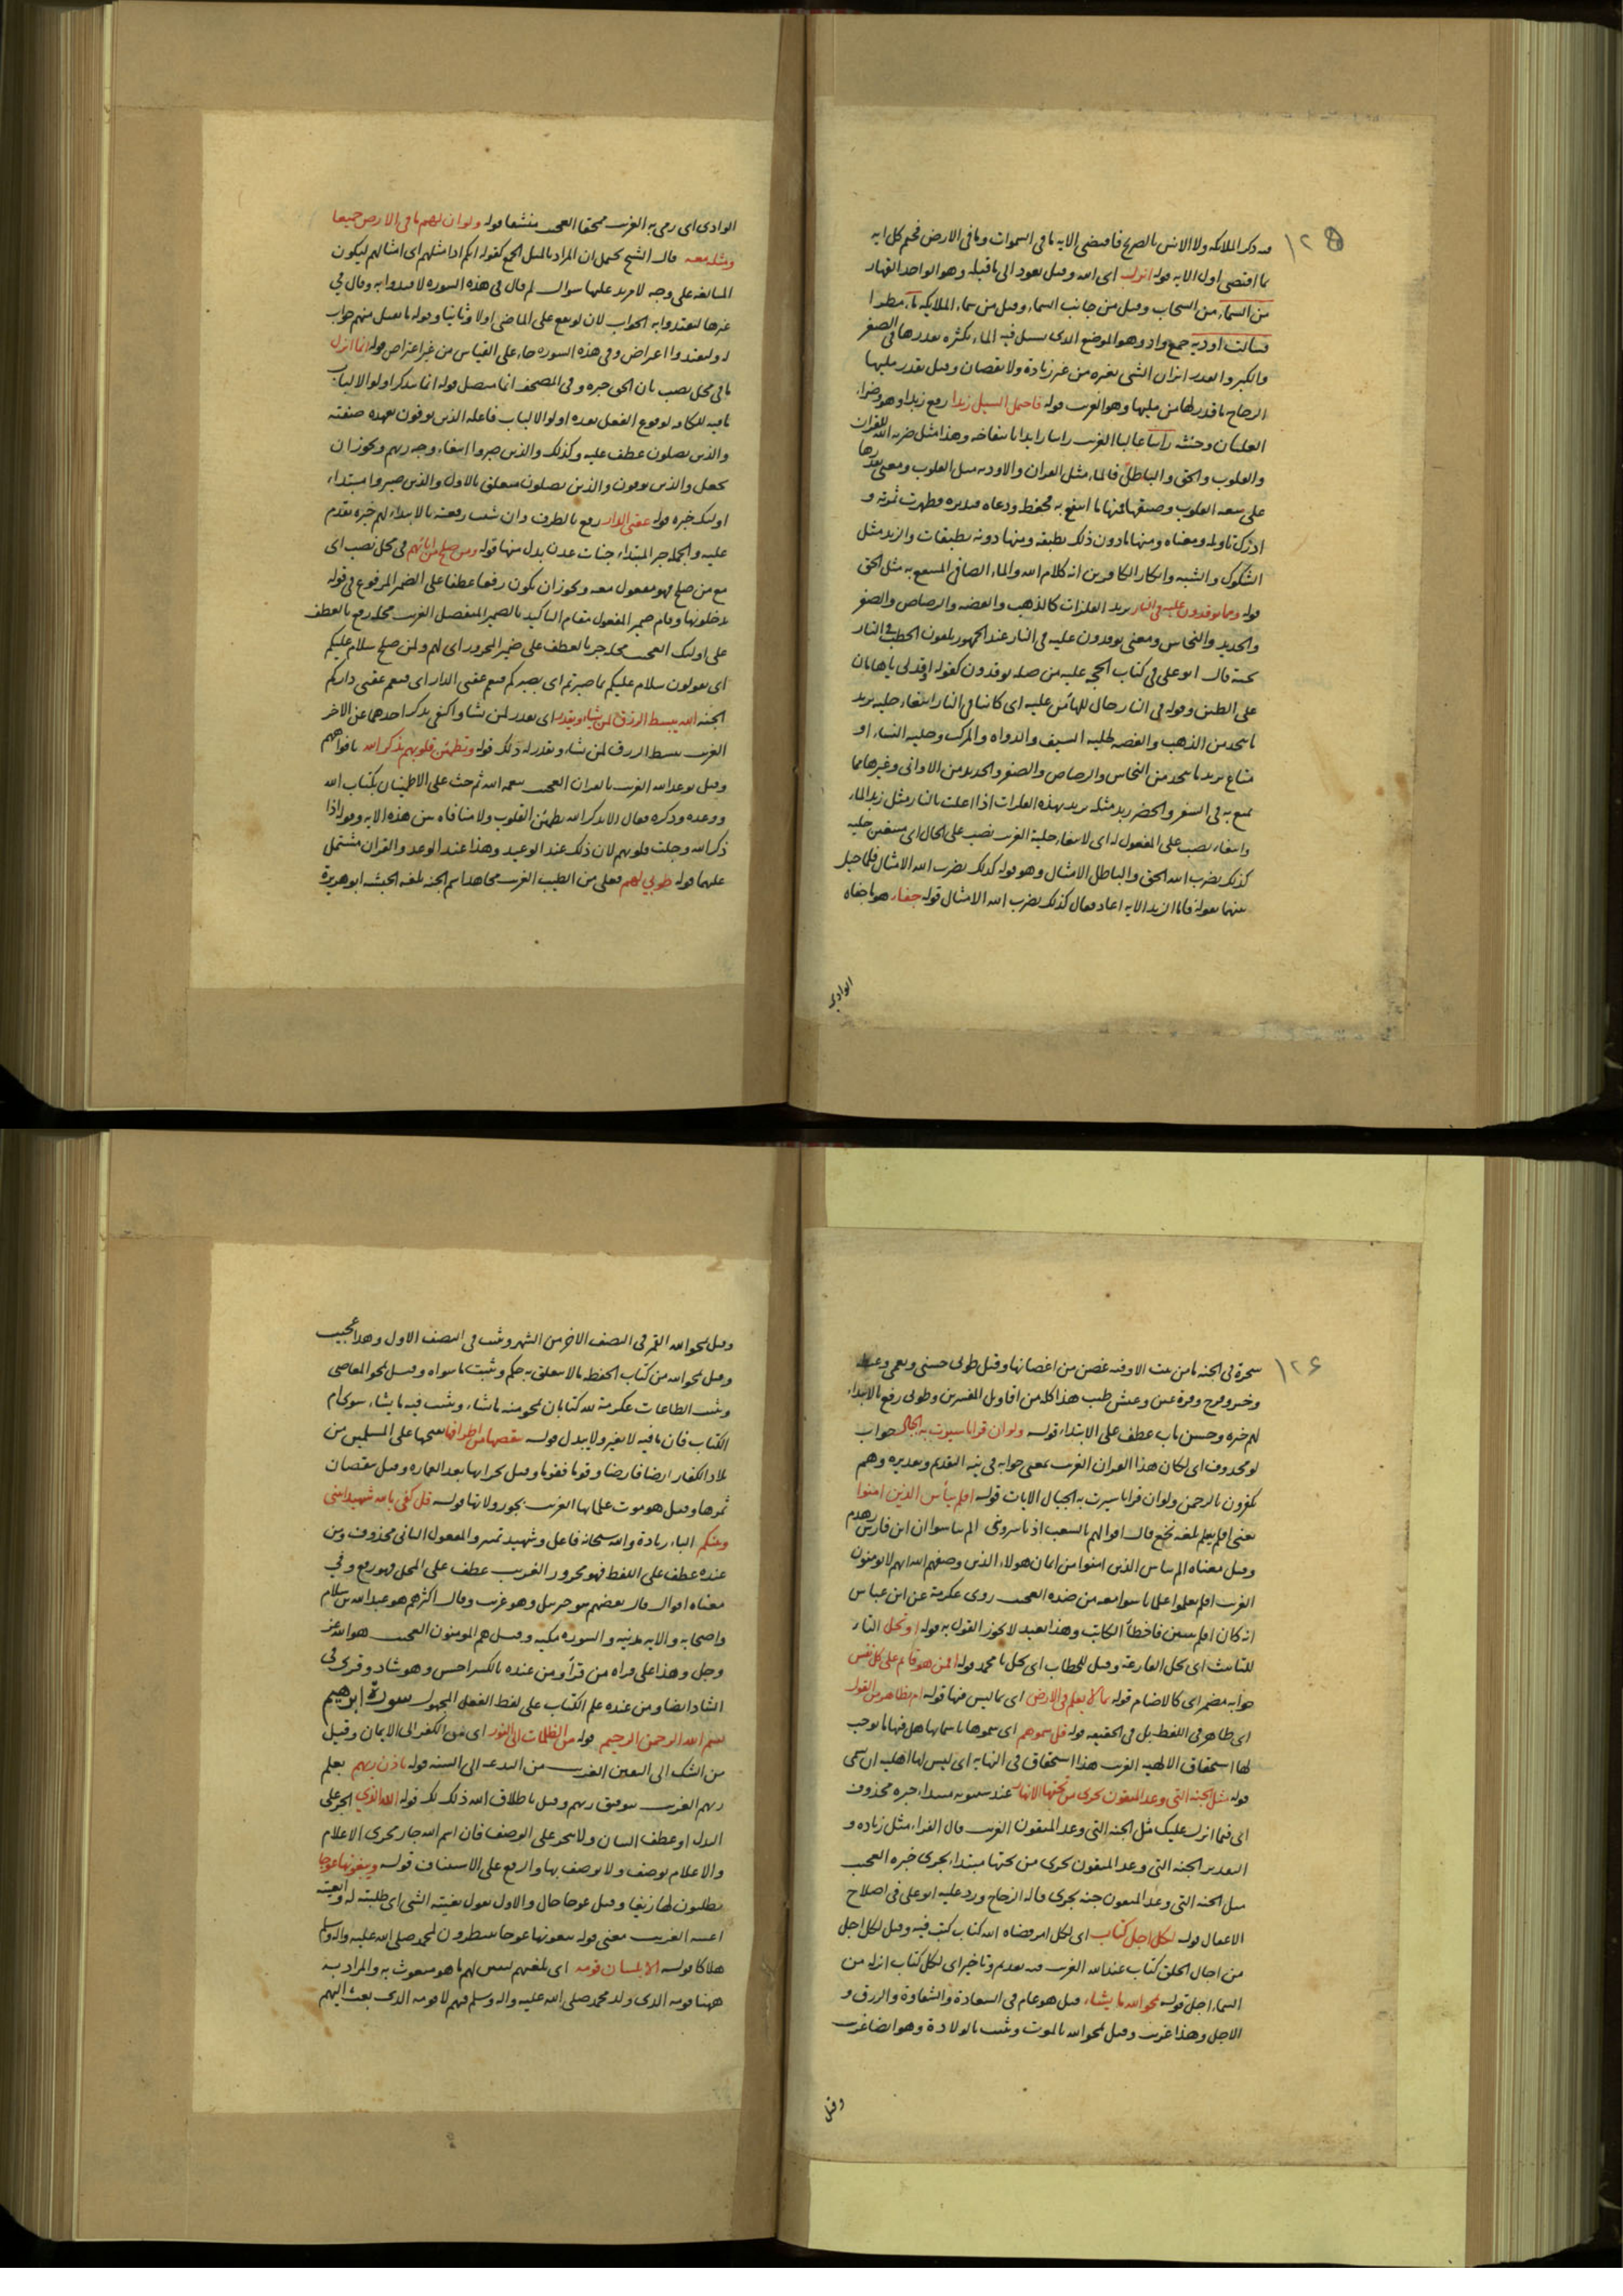 ١٢٥
قد ذكر الملائكه ولا الانس بالصريح فاقتضى الايه ما فى السموات وما فى الارض فختم كل ايه
بما اقتضى اول الايه قوله انزل اى الله وقيل يعود الى ما قبله وهو الواحد القهار
من السماء من السحاب وقيل من جانب السماء وقيل من سماء الملايكه ماء مطرا
فسالت اوديه جمع واد وهو الموضع الذى يسيل فيه الماء بكثره بقدرها فى الصغر
والكبر والقدر اتزان الشى بغيره من غير زيادة ولا نقصان وقيل بقدر مليها
الزجاج ما قدر لها من مليها وهو الغرب قوله فاحتمل السيل زبدا رفع زبدا وهو وضر
الغليان وخبثه رابيا عاليا الغرب رابيا زايدا بانتفاخه وهذا مثل ضربه الله للقران
والقلوب والحق والباطل فالماء مثل القران والاوديه مثل القلوب ومعنى بقدرها
على سعه القلوب وضيقها فمنها ما انتفع به فحفظه ووعاه فتدبره فظهرت ثمرته و
ادرك تاويله ومعناه ومنها ما دون ذلك بطبقه ومنها دونه بطبقات والزبد مثل
الشكوك والشبه وانكار الكافرين انه كلام الله والماء الصافى المنتفع به مثل الحق
قوله ومما يوقدون عليه فى النار يريد الفلزات كالذهب والفضه والرصاص والصفر
والحديد والنحاس ومعنى يوقدون عليه فى النار عند الجمهور يلقون الحطب فى النار
تحته قال ابو على فى كتاب الحجه عليه من صله يوقدون كقوله اوقد لى يا هامان
على الطين وقوله فى النار حال للهاء من عليه اى كائنا فى النار ابتغاء حليه يريد
ما يتخذ من الذهب والفضه لحليه السيف والدواه والمركب وحليه النساء او
متاع يريد ما يتخذ من النحاس والرصاص والصفر والحديد من الاوانى وغيرها مما
يتمتع به فى السفر والحضر زبد مثله يريد بهذه الفلزات اذا اغليت بالنار مثل زبد الماء
وابتغاء نصب على المفعول له اى لابتغاء حلية الغرب نصب على الحال اى مبتغين حليه
كذلك يضرب الله الحق والباطل الامثال وهو قوله كذلك يضرب الله الامثال فلما حيل
بينهما بقوله فاما الزبد الايه اعاد فقال كذلك يضرب الله الامثال قوله جفاء هو ما جفاه
الوادى
الوادى اى رمى به الغرب ممحقا العجيب منشفا قوله ولو ان لهم ما فى الارض جميعا
ومثله معه قال الشيخ يحتمل ان المراد بالمثل الجمع كقوله انكم اذا مثلهم اى امثالهم ليكون
المبالغه على وجه لا مزيد عليها سوال لم قال فى هذه السوره لافتدوا به وقال فى
غيرها ليفتدوا به الجواب لان لو يقع على الماضى اولا وثانيا وقوله ما تقبل منهم جواب
له وليفتدوا اعتراض وفى هذه السوره جاء على القياس من غير اعتراض قوله انما انزل
ما فى محل نصب بان الحق خبره وفى المصحف انما متصل قوله انما يتذكر اولو الالباب
ما فيه للكافه لوقوع الفعل بعده اولو الالباب فاعله الذين يوفون بعهده صفته
والذين يصلون عطف عليه وكذلك والذين صبروا ابتغاء وجه ربهم ويجوز ان
يجعل والذين يوفون والذين يصلون متعلق بالاول والذين صبروا مبتداء
اولئك خبره قوله عقبى الدار رفع بالظرف وان شئت رفعته بالابتداء لهم خبره تقدم
عليه والجمله خبر المبتداء جنات عدن بدل منها قوله ومن صلح من ابائهم فى محل نصب اى
مع من صلح فهو مفعول معه ويجوز ان يكون رفعا عطفا على الضمير المرفوع فى قوله
يدخلونها وقام ضمير المفعول مقام التاكيد بالضمير المنفصل الغرب محله رفع بالعطف
على اولئك العجيب محله جر بالعطف على ضمير المجرور اى لهم ولمن صلح سلام عليكم
اى يقولون سلام عليكم بما صبرتم اى بصبركم فنعم عقبى الدار اى فنعم عقبى داركم
الجنه الله يبسط الرزق لمن يشاء ويقدر اى يقدر لمن يشا واكتفى بذكر احدهما عن الاخر
الغرب يبسط الرزق لمن يشاء ويقدر له ذلك قوله وتطمئن قلوبهم بذكر الله بافواههم
وقيل بوعد الله الغرب بالقران العجيب بنعمه الله ثم حث على الاطمينان بكتاب الله
ووعده وذكره فقال الا بذكر الله تطمئن القلوب ولا منافاه بين هذه الايه وقوله اذا
ذكر الله وجلت قلوبهم لان ذلك عند الوعيد وهذا عند الوعد والقران مشتمل
عليهما قوله طوبى لهم فعلى من الطيب الغرب مجاهد اسم الجنه بلغه الحبشه ابو هريرة
١٢۶
شجرة فى الجنه ما من بيت الا وفيه غصن من اغصانها وقيل طوبى حسنى ونعمى وغبطه
وخير وفرح وقرة عين وعيش طيب هذا كله من اقاويل المفسرين وطوبى رفع بالابتداء
لهم خبره وحسن ماب عطف على الابتداء قوله ولو ان قرانا سيرت به الجبال جواب
لو محذوف اى لكان هذا القران الغرب بمعنى جوابه فى نيه التقديم وتقديره وهم
يكفرون بالرحمن ولو ان قرانا سيرت به الجبال الايات قوله افلم ييأس الذين امنوا
يعنى افلم يعلم بلغه نخع قال اقول لهم بالشعب اذ ياسروننى الم تياسوا انى ابن فارس زهدم
وقيل معناه الم ييأس الذين امنوا من ايمان هولاء الذين وصفهم الله انهم لا يومنون
الغرب افلم يعلموا علما يئسوا معه من ضده العجيب روى عكرمة عن ابن عباس
انه كان افلم يتبين فاخطأ الكاتب وهذا بعيد لا يجوز القول به قوله او تحل التاء
للتانيث اى تحل القارعة وقيل للخطاب اى تحل يا محمد قوله افمن هو قايم على كل نفس
جوابه مضمر اى كالاصنام قوله بما لا يعلم فى الارض اى بما ليس فيها قوله ام بظاهر من القول
اى ظاهر فى اللفظ بل فى الحقيقه قوله قل سموهم اى سموها باسمائها هل فيها ما يوجب
لها استحقاق الالهيه الغرب هذا استحقاق فى النهايه اى ليس لها اهليه ان تسمى
قوله مثل الجنه التى وعد المتقون تجرى من تحتها الانهار عند سيبويه مبتداء خبره محذوف
اى فيما انزل عليك مثل الجنه التى وعد المتقون الغرب قال الفراء مثل زياده و
التقدير الجنه التى وعد المتقون تجرى من تحتها مبتداء تجرى خبره العجيب
مثل الجنه التى وعد المتقون جنه تجرى قاله الزجاج ورد عليه ابو على فى اصلاح
الاغفال قوله لكل اجل كتاب اى لكل امر قضاه الله كتاب كتب فيه وقيل لكل اجل
من اجال الخلق كتاب عند الله الغرب فيه تقديم وتاخير اى لكل كتاب انزله من
السماء اجل قوله يمحو الله ما يشاء قيل هو عام فى السعادة والشقاوة والرزق و
الاجل وهذا غرب وقيل يمحو الله بالموت ويثبت بالولادة وهو ايضا غرب
وقيل
وقيل يمحو الله القمر فى النصف الاخر من الشهر ويثبت فى النصف الاول وهذا عجيب
وقيل يمحو الله من كتاب الحفظه ما لا يتعلق به حكم ويثبت ما سواه وقيل يمحو المعاصى
ويثبت الطاعات عكرمة لله كتابان يمحو منه ما يشاء ويثبت فيه ما يشاء سوى ام
الكتاب فان ما فيه لا يغير ولا يبدل قوله ننقصها من اطرافها نفتحها على المسلمين من
بلاد الكفار ارضا فارضا وقوما فقوما وقيل بخرابها بعد العماره وقيل بنقصان
ثمرها وقيل هو موت علمائها الغرب بجور ولاتها قوله قل كفى بالله شهيدا بينى
وبينكم الباء زيادة والله سبحانه فاعل وشهيد تمييز والمفعول الثانى محذوف ومن
عنده عطف على اللفظ فهو مجرور الغريب عطف على المحل فهو رفع وفى
معناه اقوال قال بعضهم هو جبريل وهو غرب وقال اكثرهم هو عبد الله بن سلام
واصحابه والايه مدنيه والسوره مكيه وقيل هم المومنون العجيب هو الله عز
وجل وهذا على قراه من قرأ ومن عنده بالكسر احسن وهو شاد وقرى فى
الشاذ ايضا ومن عنده علم الكتاب على لفظ الفعل المجهول سورة ابرهيم
بسم الله الرحمن الرحيم قوله من الظلمات الى النور اى من الكفر الى الايمان وقيل
من الشك الى اليقين الغرب من البدعه الى السنه قوله باذن ربهم بعلم
ربهم الغرب بتوفيق ربهم وقيل باطلاق الله ذلك لك قوله الله الذى الجر على
البدل او عطف البيان ولا يجوز على الوصف فان اسم الله جار مجرى الاعلام
والاعلام توصف ولا يوصف بها والرفع على الاستيناف قوله ويبغونها عوجا
يطلبون لها زيغا وقيل عوجا حال والاول تقول بغيته الشى اى طلبته له وابغيته
اعنته الغريب معنى قوله يبغونها عوجا ينتظرون لمحمد صلى الله عليه واله وسلم
هلاكا قوله الا بلسان قومه اى بلغتهم ليبين لهم ما هو مبعوث به والمراد به
ههنا قومه الذى ولد محمد صلى الله عليه واله وسلم فيهم لا قومه الذى بعث اليهم